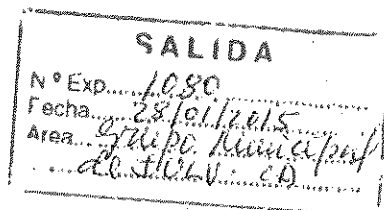 SALIDA
Nº Exp. 1080
Fecha 28/01/2015
Area Grupo Municipal
de